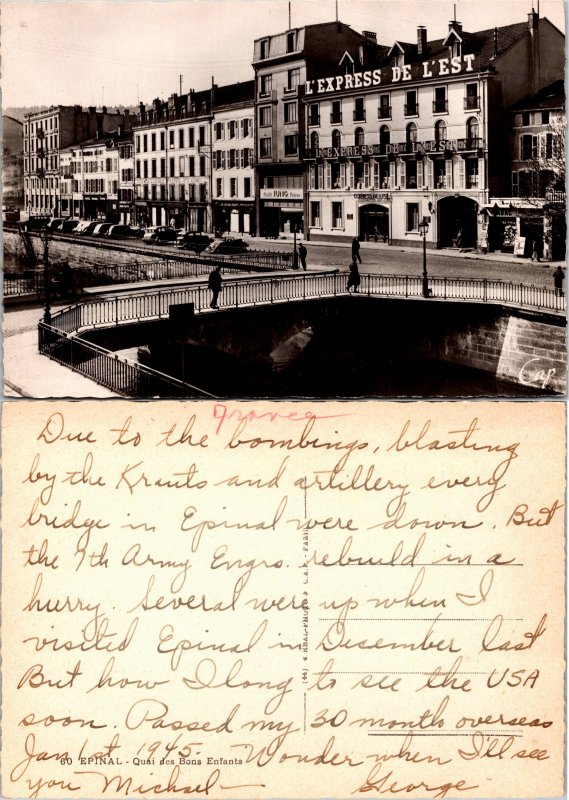 L'EXPRESS DE L'EST
L'EXPRESS DE L'EST
Cap
France
Due to the bombings, blasting
by the Krauts and artillery every
bridge in Epinal were down. But
the 7th Army Engrs. rebuild in a
hurry. Several were up when I
visited Epinal in Desember last
But how I long to see the USA
soon. Passed my 30 month overseas
Jan 1st 1945. Wonder when I'll see
60 EPINAL - Quai des Bons Enfants
you Michael —
George